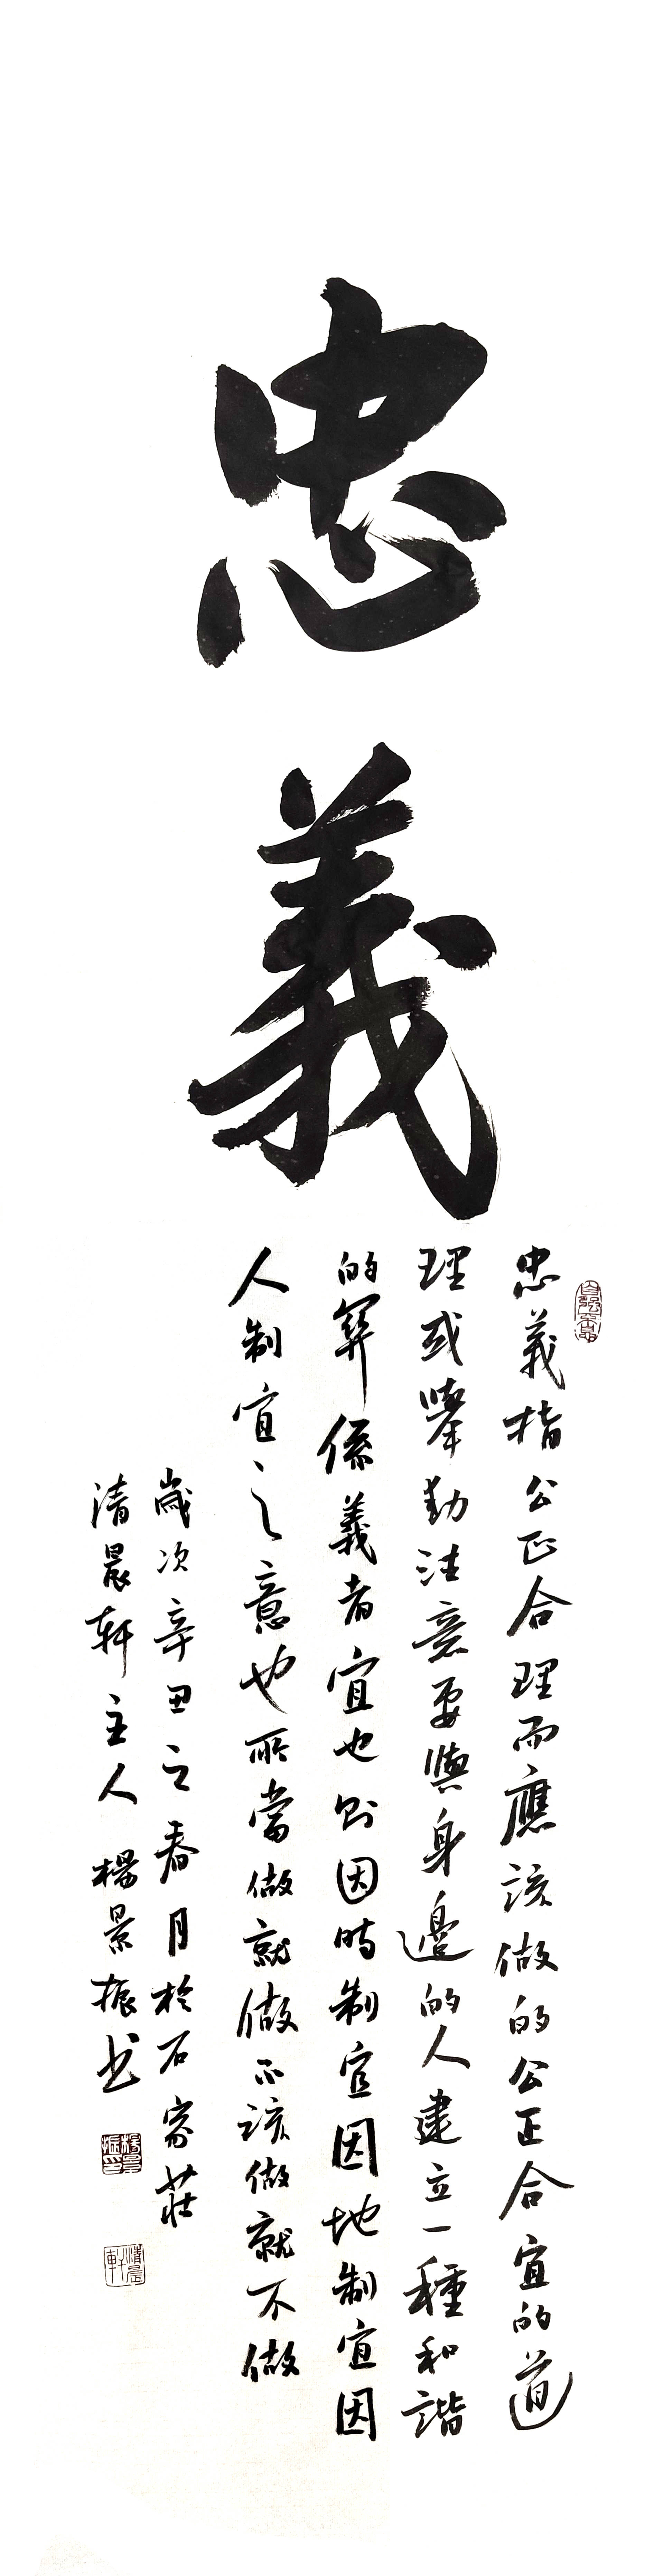 忠義
忠義指公正合理而應該做的公正合宜的道
理或舉動注意要與身邊的人建立一種和諧
的關係義者宜也則因時制宜因地制宜因
人制宜之意也所當做就做不該做就不做
歲次辛丑之春月於石家莊
清晨軒主人楊景振書
自強不息
楊景振印
清晨軒